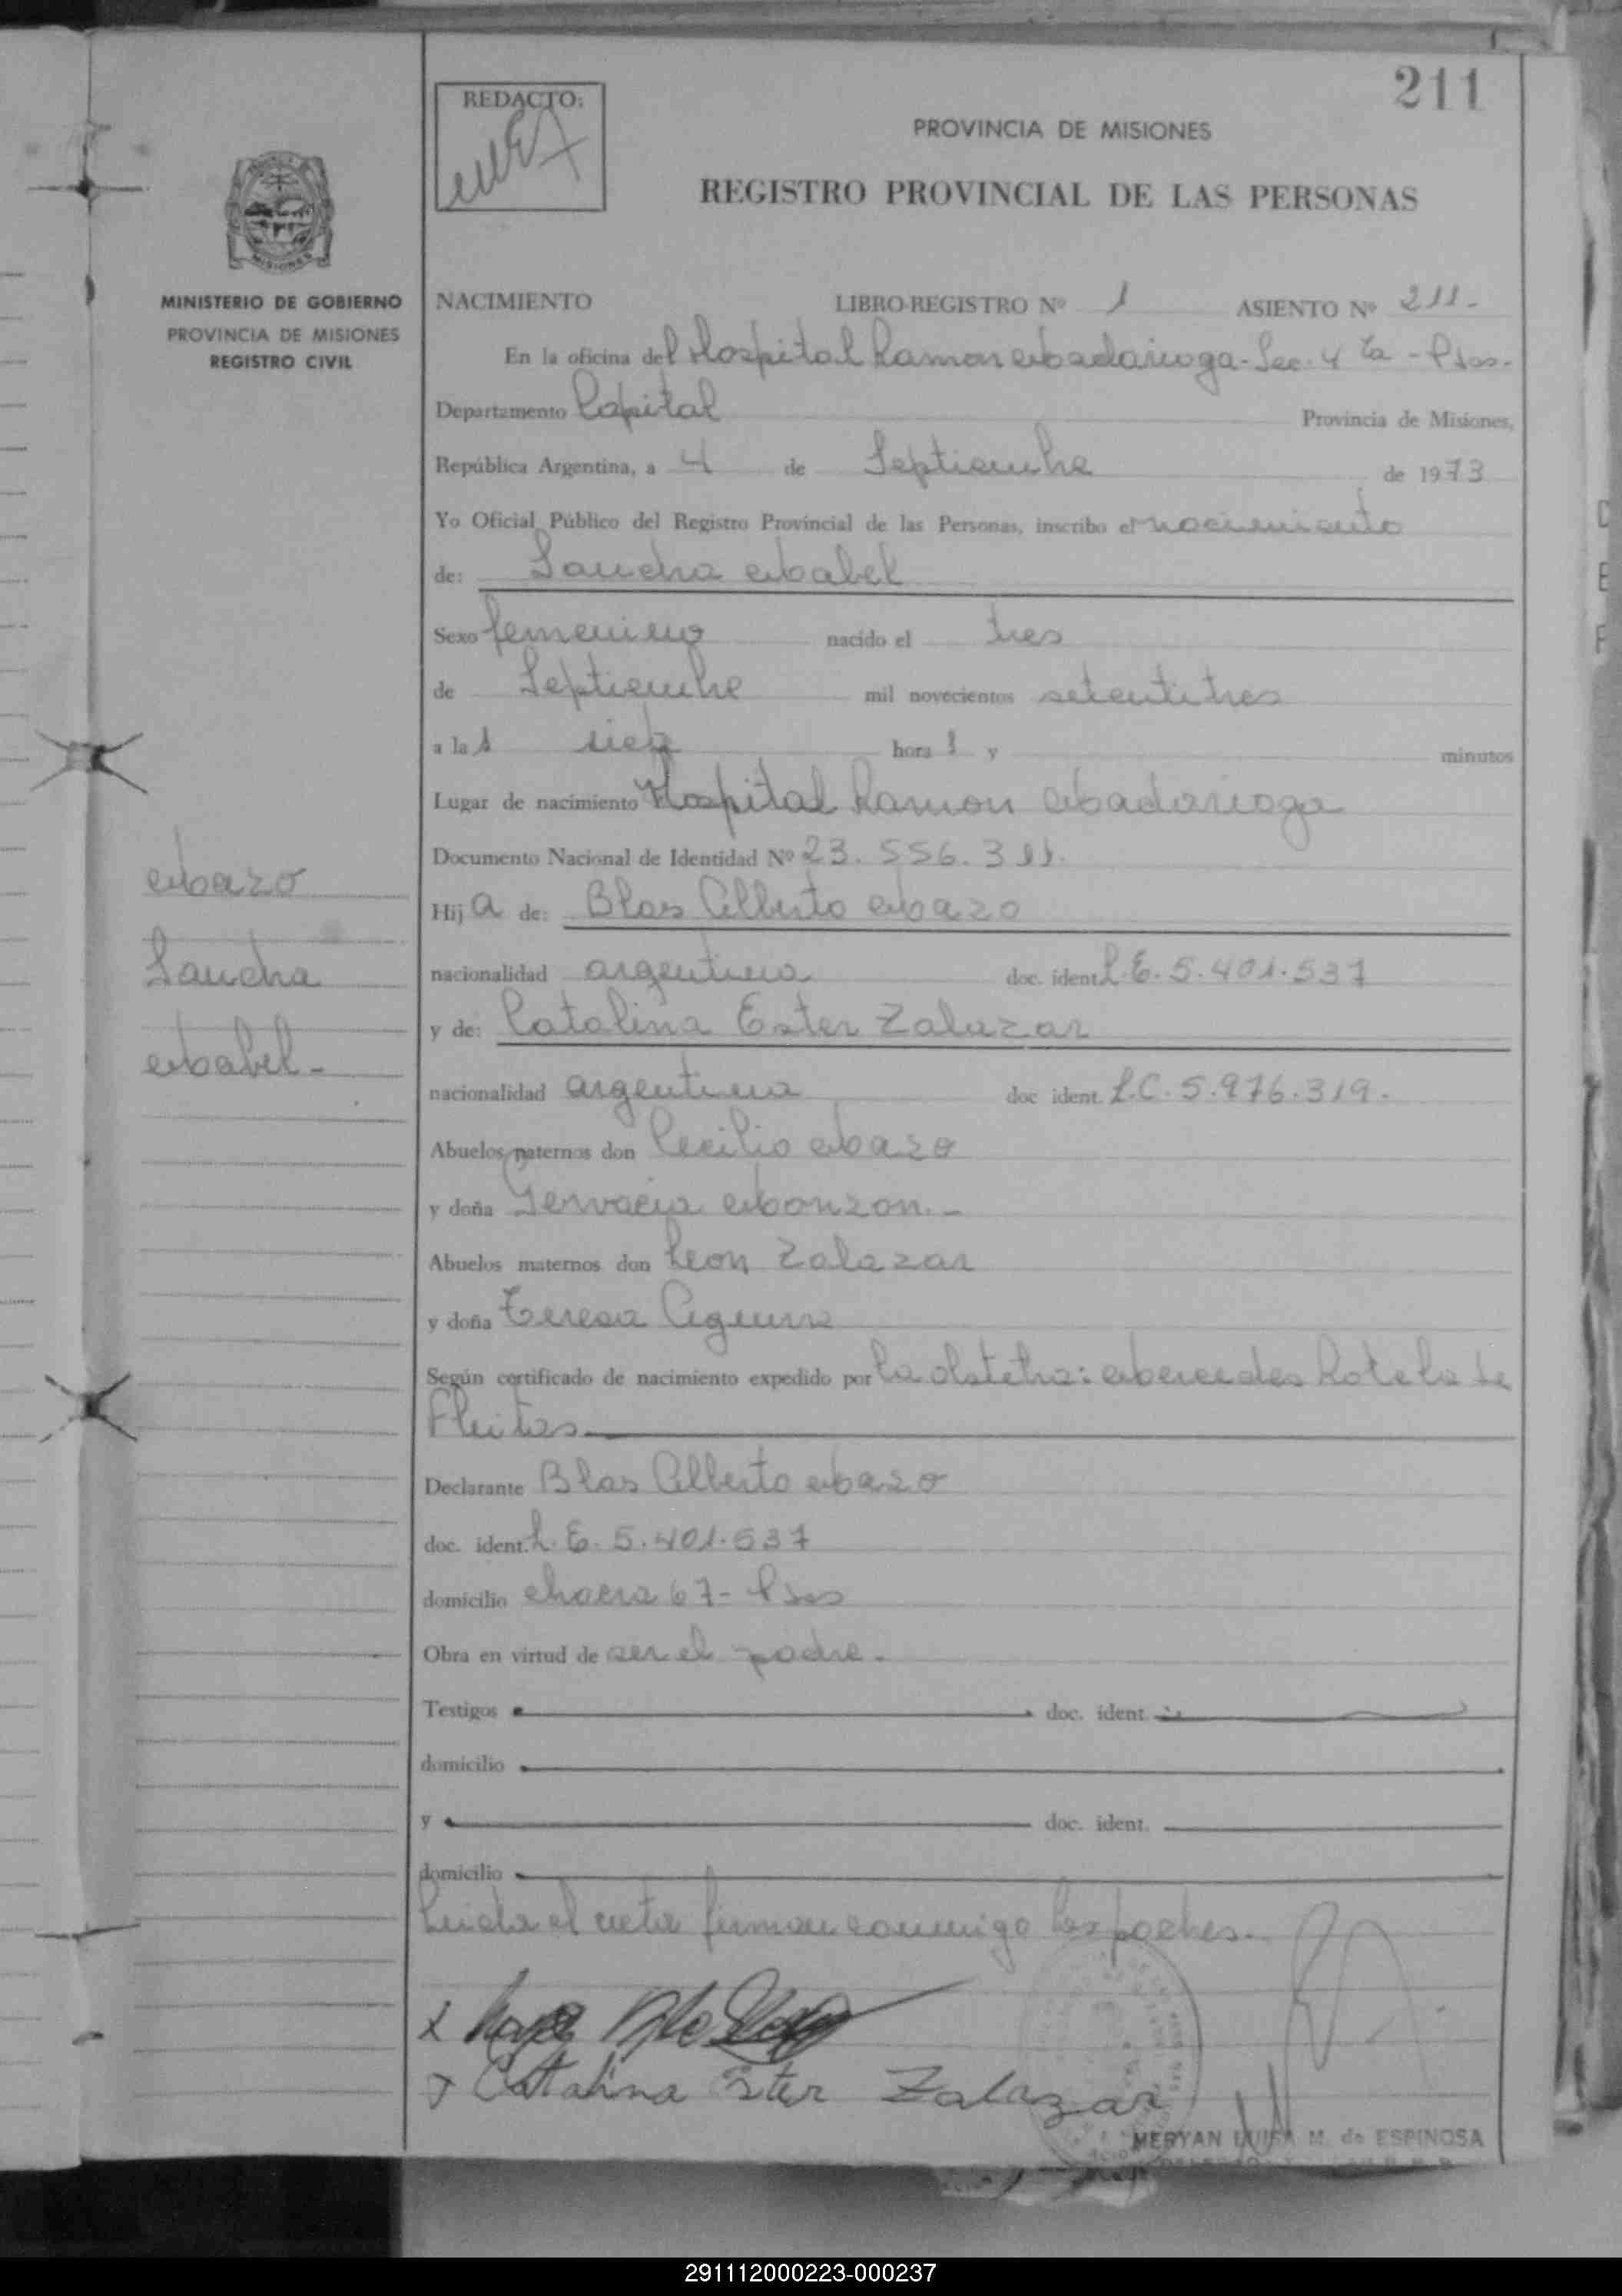 211
REDACTO:
PROVINCIA DE MISIONES
REGISTRO PROVINCIAL DE LAS PERSONAS
MISIONES
MINISTERIO DE GOBIERNO
PROVINCIA DE MISIONES
REGISTRO CIVIL
NACIMIENTO LIBRO-REGISTRO Nº 1 ASIENTO Nº 211.-
En la oficina del Hospital Ramon Madariaga - Sec. 4 ta - Psas.
Departamento Capital Provincia de Misiones,
República Argentina, a 4 de Septiembre de 1973
Yo Oficial Público del Registro Provincial de las Personas, inscribo el nacimiento
de: Sandra Mabel
Sexo femenino nacido el tres
de Septiembre mil novecientos setentitres
a las hora s y minutos
Lugar de nacimiento Hospital Ramon Madariaga
Documento Nacional de Identidad Nº 23.556.311.
Mazo
Hij a de: Blas Alberto Mazo
Sandra
nacionalidad argentina doc. ident. L.E. 5.401.537
y de: Catalina Ester Zalazar
Mabel -
nacionalidad argentina doc ident. L.C. 5.976.319.
Abuelos paternos don Cecilio Mazo
y doña Gervacia Monzon.-
Abuelos maternos don Leon Zalazar
y doña Teresa Aguirre
Según certificado de nacimiento expedido por la obstetra: Mercedes Rotela de
Fleitas
Declarante Blas Alberto Mazo
doc. ident. L.E. 5.401.537
domicilio chacra 67 - Psas
Obra en virtud de ser el padre.
Testigos doc. ident.
domicilio
y doc. ident.
domicilio
Leida el acta firman conmigo los padres.
x
x Catalina Ster Zalazar
MERYAN LUISA M. de ESPINOSA
291112000223-000237